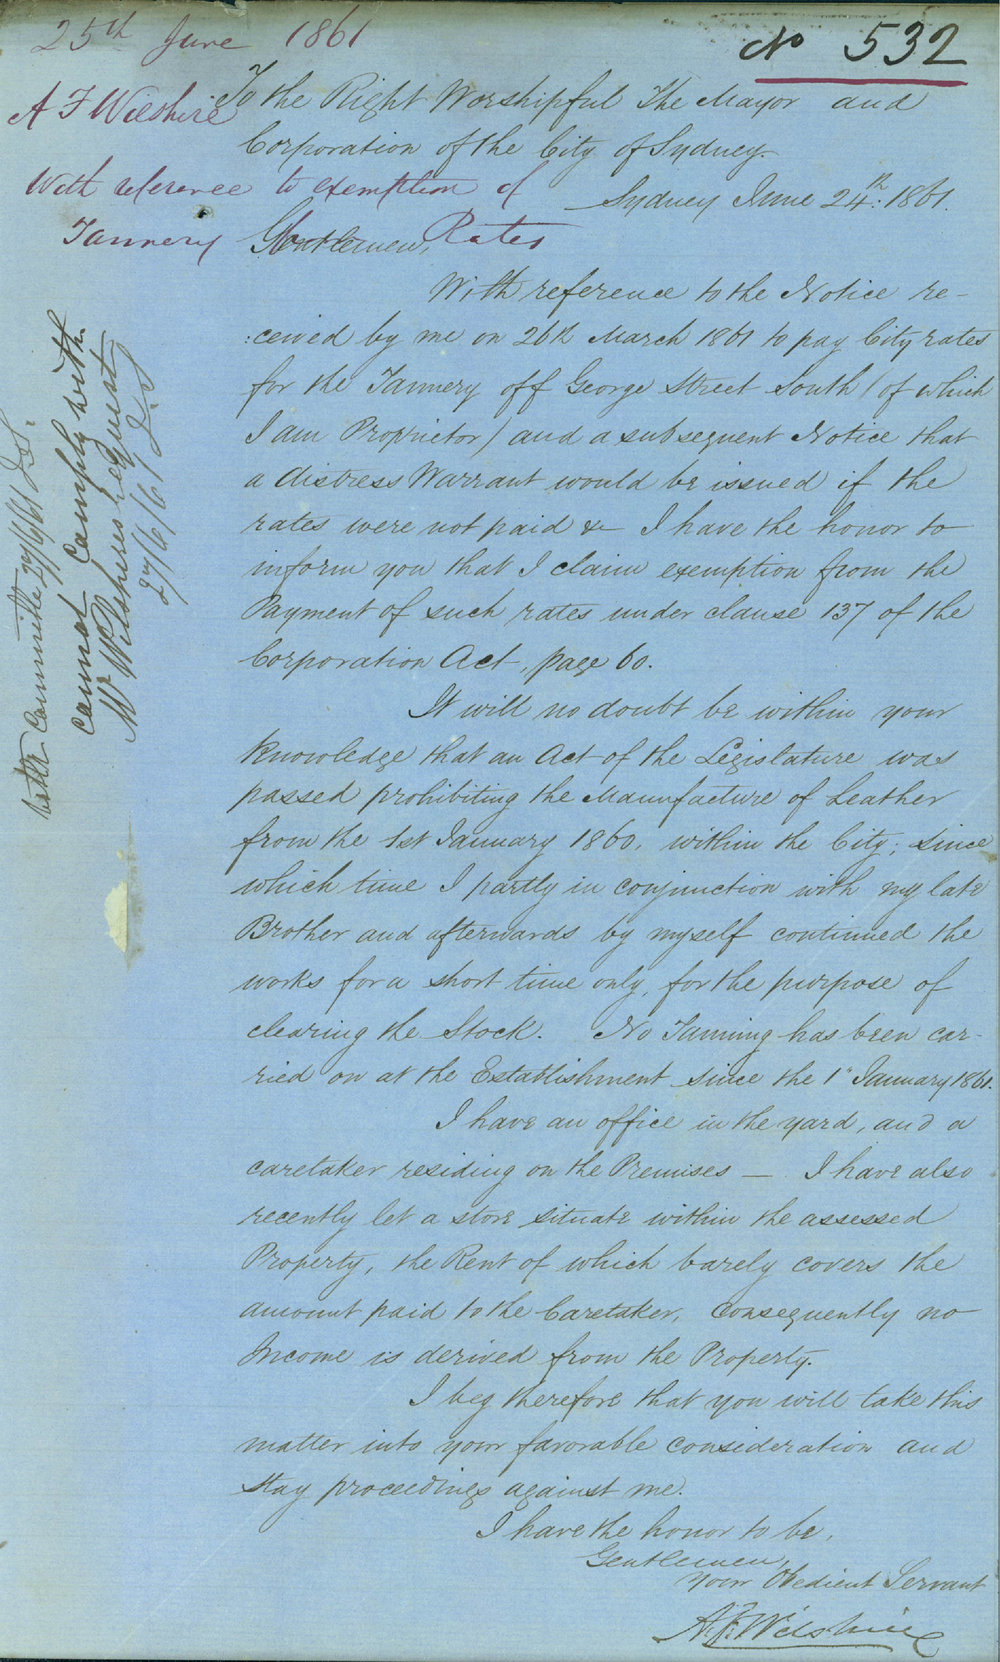 25th June 1861
No 532
A F Wilshire
With reference to exemption of
Tannery Rates
To the Right Worshipful The Mayor and
Corporation of the City of Sydney.
Sydney June 24th. 1861.
Gentlemen,
With reference to the Notice re-
:ceived by me on 26th March 1861 to pay City rates
for the Tannery off George Street South (of which
I am Proprietor) and a subsequent Notice that
a distress Warrant would be issued if the
rates were not paid &- I have the honor to
inform you that I claim exemption from the
Payment of such rates under clause 137 of the
Corporation Act, page 60.
It will no doubt be within your
Knowledge that an Act of the Legislature was
passed prohibiting the Manufacture of Leather
from the 1st January 1860. within the City; since
which time I partly in conjunction with my late
Brother and afterwards by myself continued the
works for a short time only, for the purpose of
clearing the Stock. No Tanning has been car-
ried on at the Establishment since the 1" January 1861.
I have an office in the yard, and a
caretaker residing on the Premises — I have also
recently let a store situate within the assessed
Property, the Rent of which barely covers the
amount paid to the Caretaker, consequently no
Income is derived from the Property.
I beg therefore that you will take this
matter into your favorable consideration and
stay proceedings against me.
I have the honor to be,
Gentlemen,
your Obedient Servant
A. F. Wilshire
Cannot comply with
Mr Wilshires request
27/6/61
Committee 27/6/61